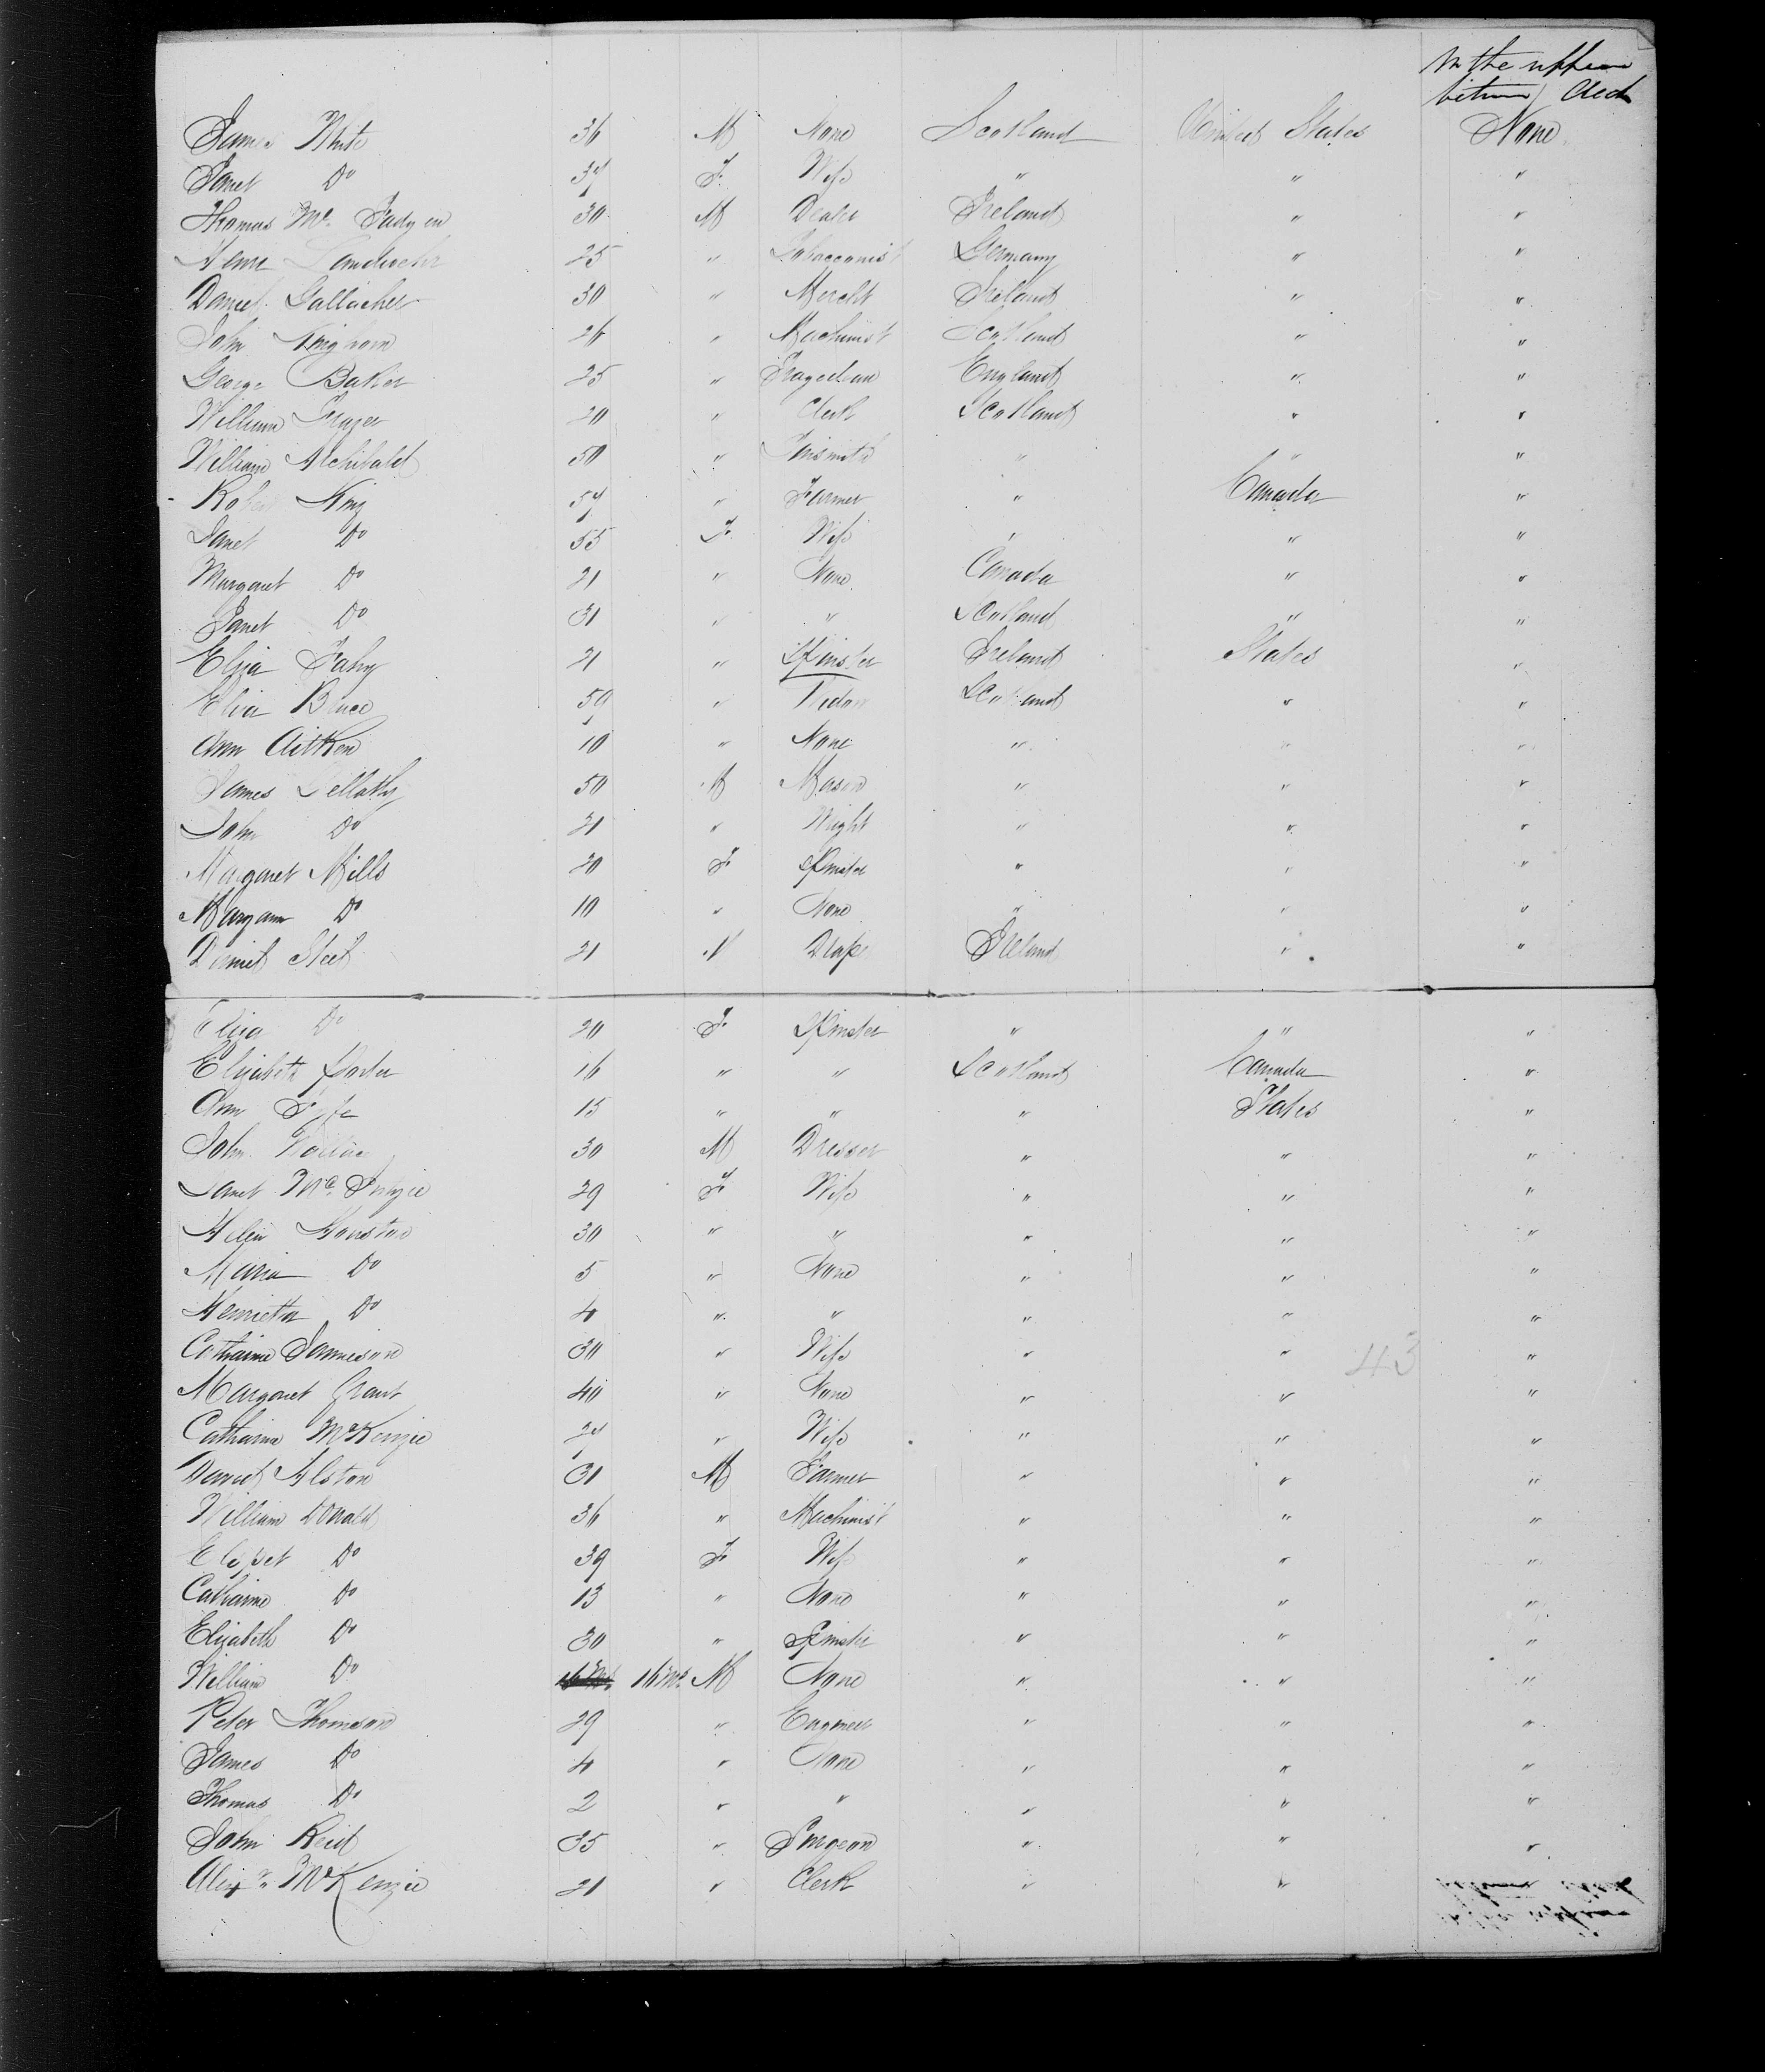 In the upper
between Deck
James White 36 M None Scotland United States None
Janet Do 37 F. Wife " " "
Thomas Mc Fadyen 30 M Dealer Ireland " "
25 " Tobacconist Germany " "
Daniel Gallacher 30 " Mercht Ireland " "
John Kinghorn 26 " Machinist Scotland " "
George Baker 25 " Tragedian England " "
William Frazer 20 " Clerk Scotland " "
William Archibald 50 " Tinsmith " " "
Robert King 57 " Farmer " Canada "
Janet Do 55 F. Wife " " "
Margaret Do 21 " None Canada " "
Janet Do 31 " " Scotland " "
Eliza Fahy 21 " Spinster Ireland States "
Eliza Bruce 59 " Widow Scotland " "
Ann Aitken 10 " None " " "
James Gellatly 50 M Mason " " "
John Do 21 " Wright " " "
Margaret Mills 20 F Spinster " " "
Maryann Do 10 " None " " "
Daniel Steel 21 M Draper Ireland " "
Eliza Do 20 F. Spinster " " "
Elizabeth Porter 16 " " Scotland Canada "
Ann Fyfe 15 " " " States "
John Wallace 30 M Dresser " " "
Janet Mc 29 F Wife " " "
Helen Houston 30 " " " " "
Maria Do 5 " None " " "
Henrietta Do 4 " " " " "
Catharine Jamieson 30 " Wife " " "
43
Margaret Grant 40 " None " " "
Catharine McKenzie 27 " Wife " " "
David Alston 31 M Farmer " " "
William Donald 36 " Machinist " " "
Elspet Do 39 F Wife " " "
Catharine Do 13 " None " " "
Elizabeth Do 30 " Spinster " " "
William Do 16 Ms 16 Ms M None " " "
Peter Thomson 29 " Engineer " " "
James Do 4 " None " " "
Thomas Do 2 " " " " "
John Reid 35 " Surgeon " " "
Alexr McKenzie 21 " Clerk " "